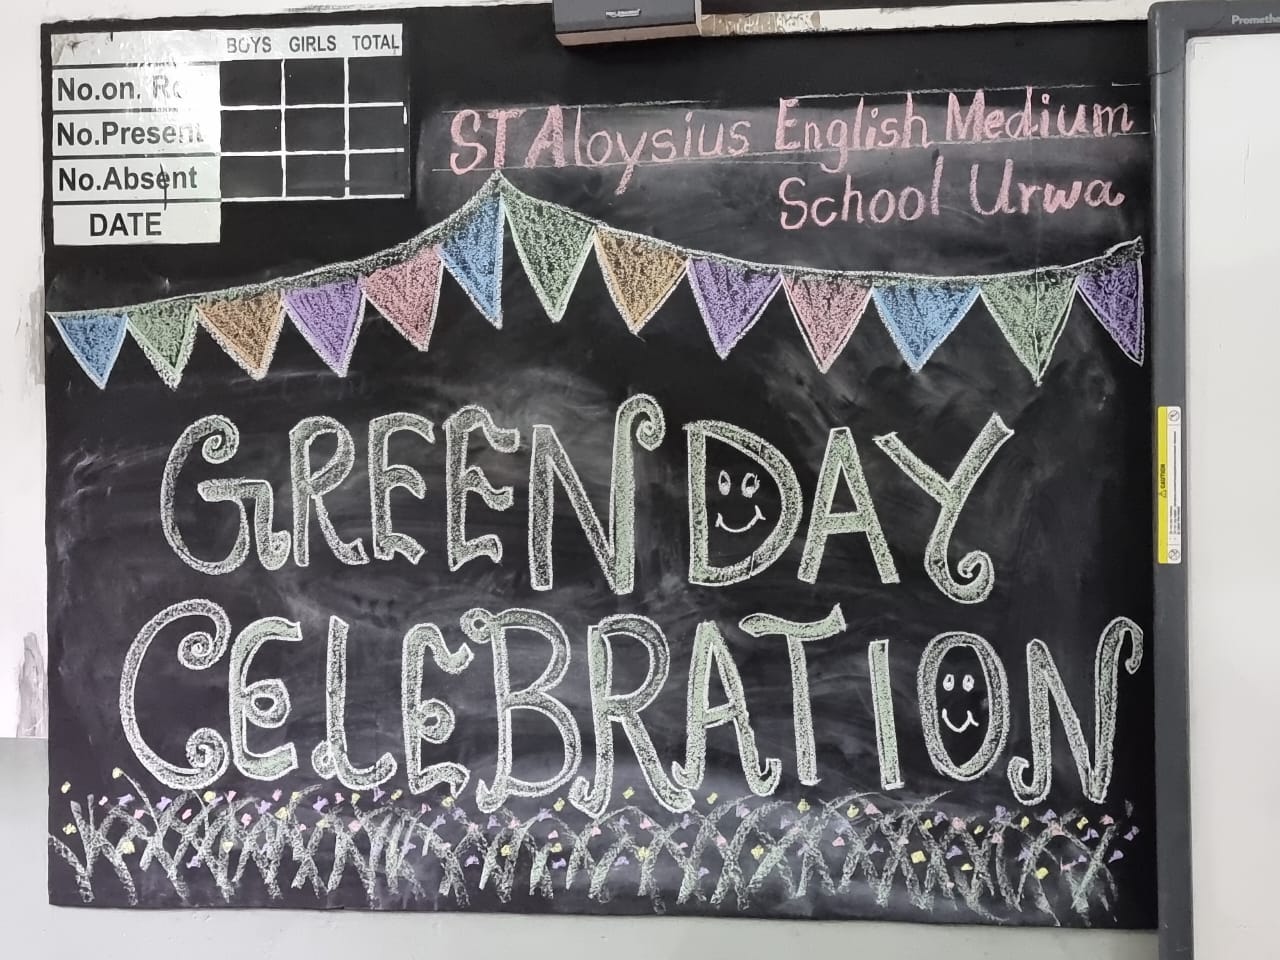 BOYS GIRLS TOTAL
No.on.
No.Present
No.Absent
DATE
ST Aloysius English Medium
School Urwa
GREEN DAY
CELEBRATION
CAUTION